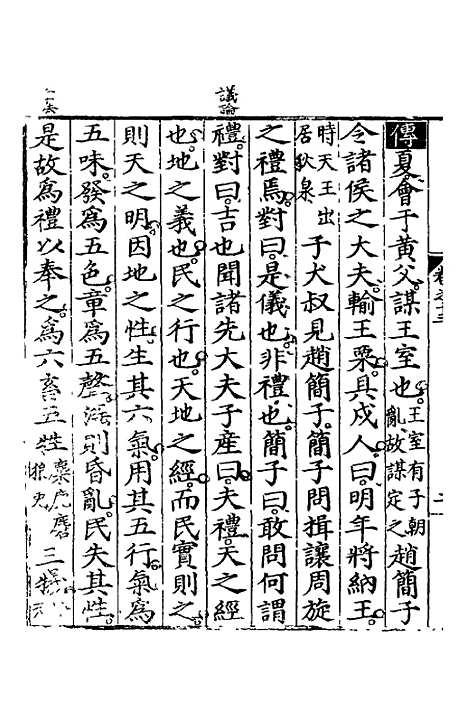 議論
傳夏會于黃父謀王室也王室有子朝亂故謀定之趙簡子
令諸侯之大夫輸王粟具戍人曰明年將納王
時天王出居狄泉子大叔見趙簡子簡子問揖讓周旋
之禮焉對曰是儀也非禮也簡子曰敢問何謂
禮對曰吉也聞諸先大夫子產曰夫禮天之經
也地之義也民之行也天地之經而民實則之
則天之明因地之性生其六氣用其五行氣爲
五味發爲五色章爲五聲淫則昏亂民失其性
是故爲禮以奉之爲六畜五牲麋鹿麏狼兔三犧